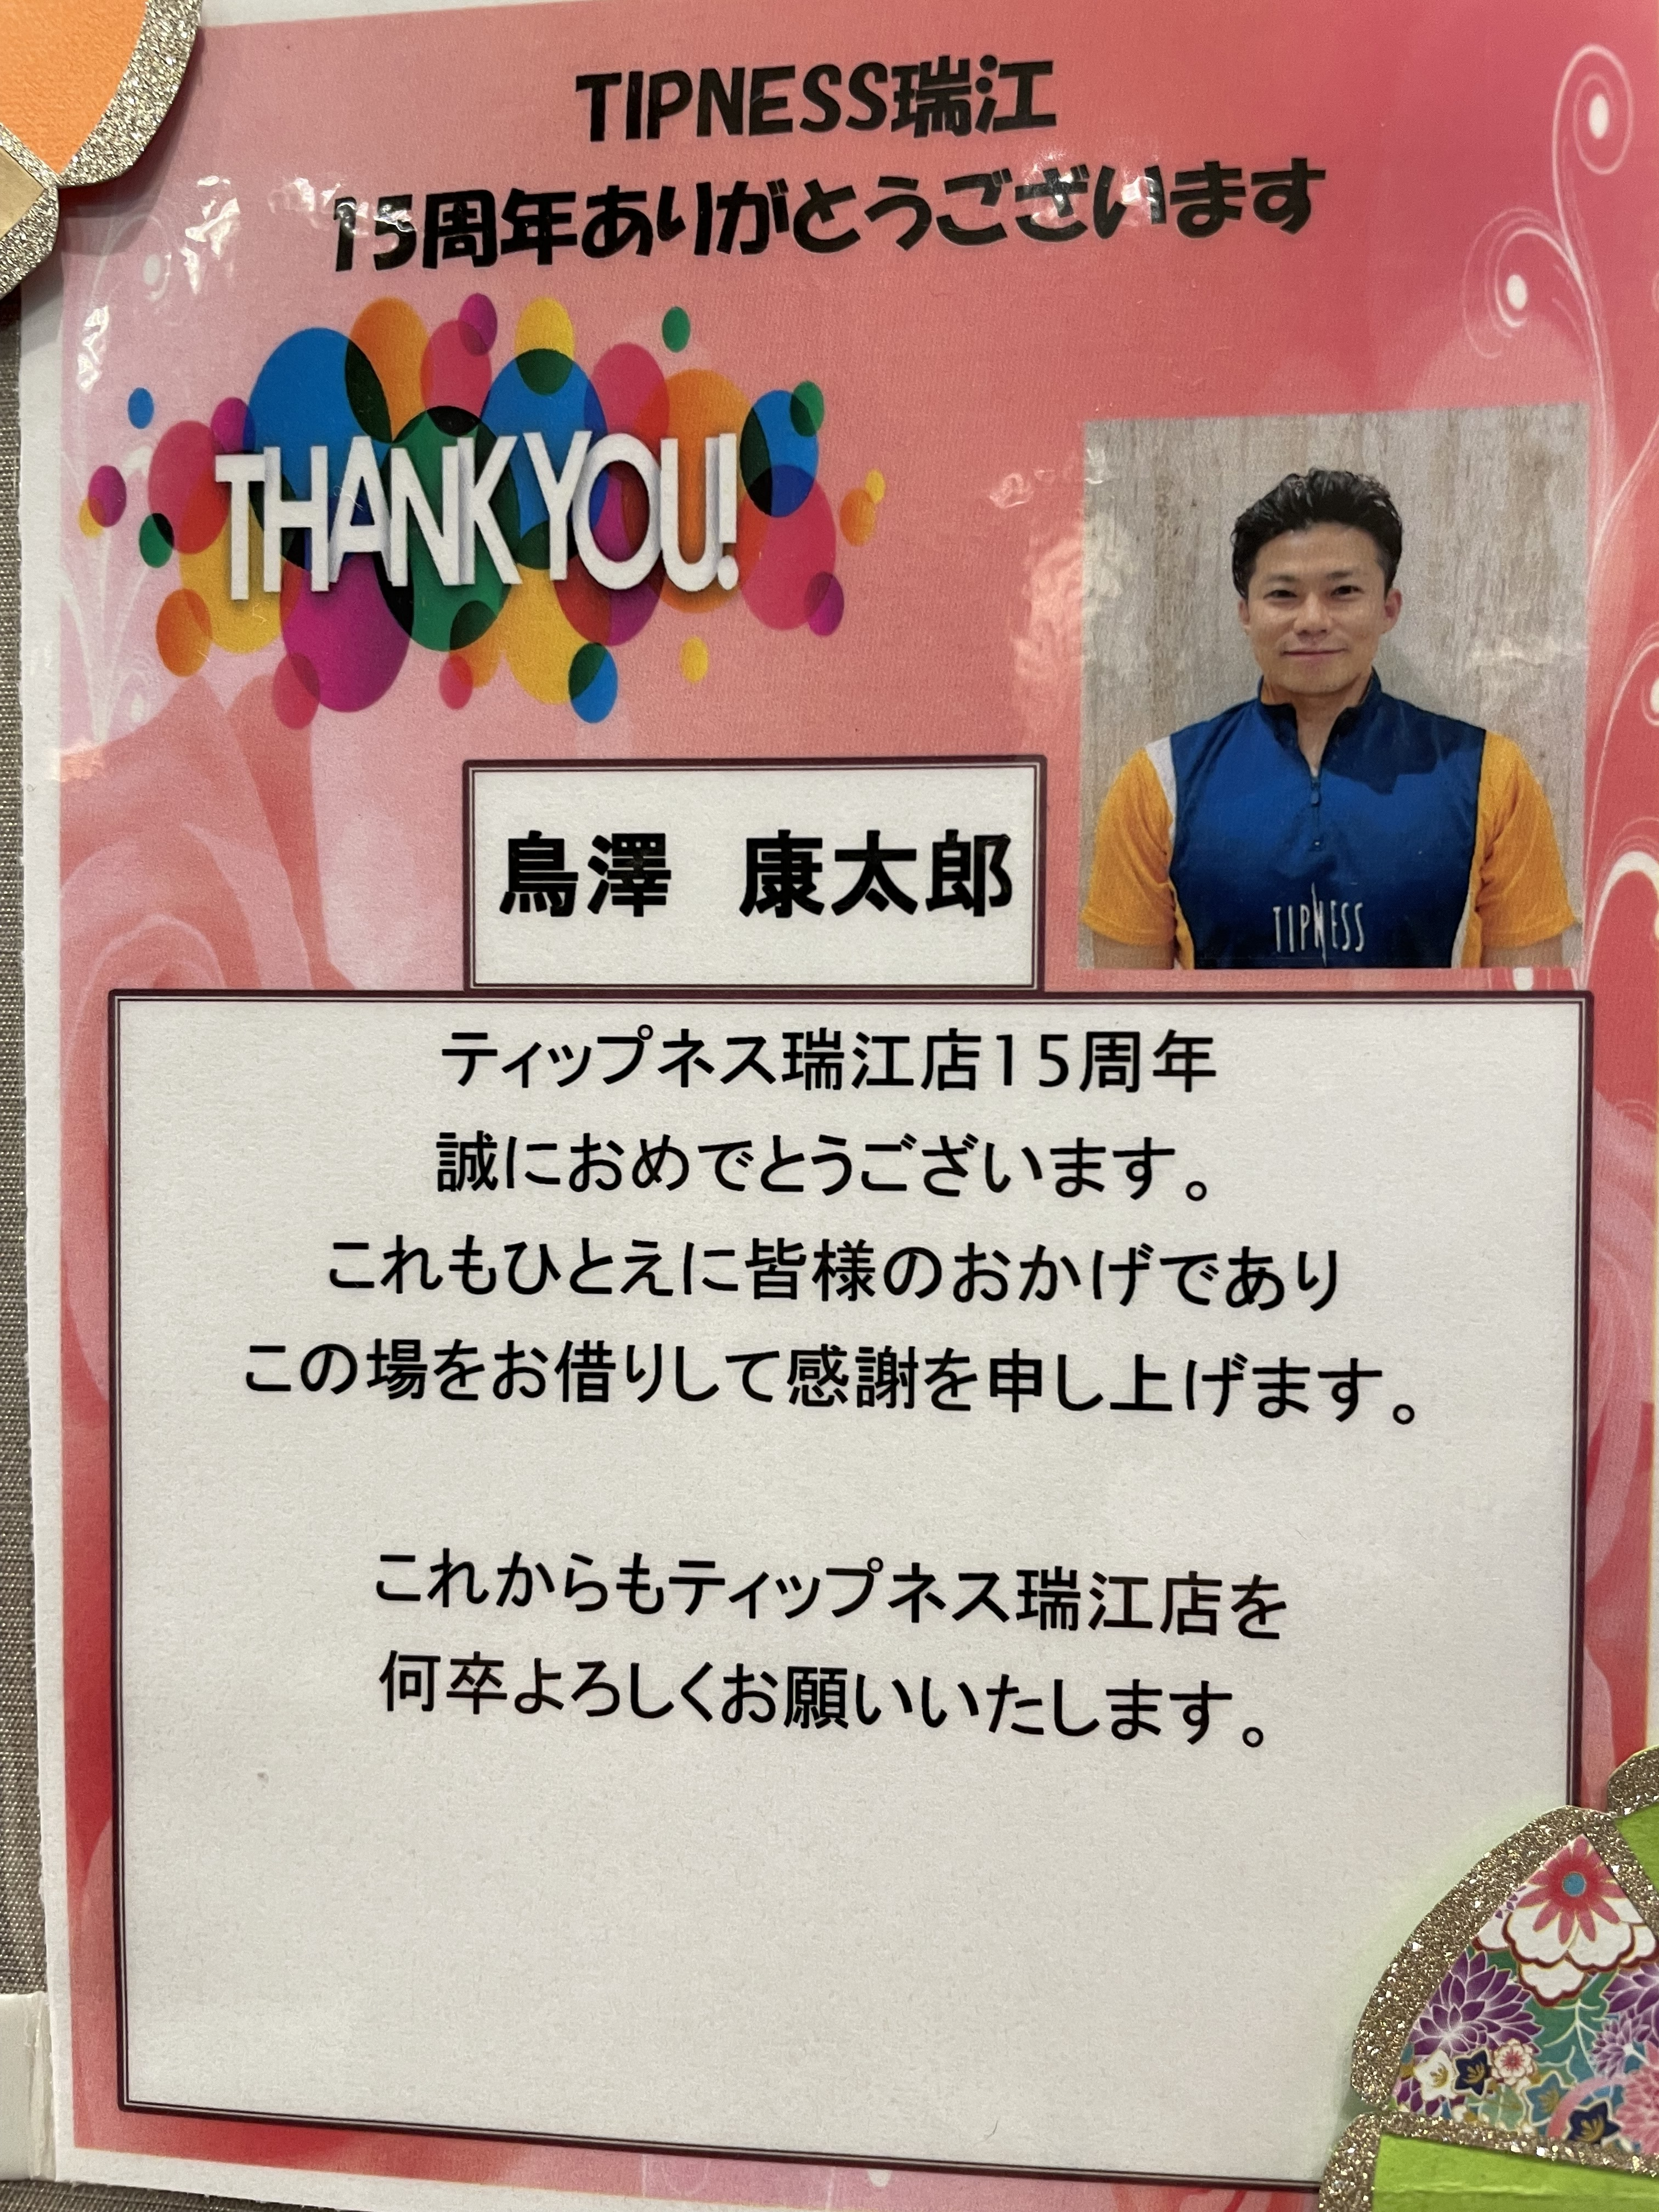 TIPNESS瑞江
15周年ありがとうございます
THANK YOU!
鳥澤　康太郎
TIPNESS
ティップネス瑞江店15周年
誠におめでとうございます。
これもひとえに皆様のおかげであり
この場をお借りして感謝を申し上げます。
これからもティップネス瑞江店を
何卒よろしくお願いいたします。